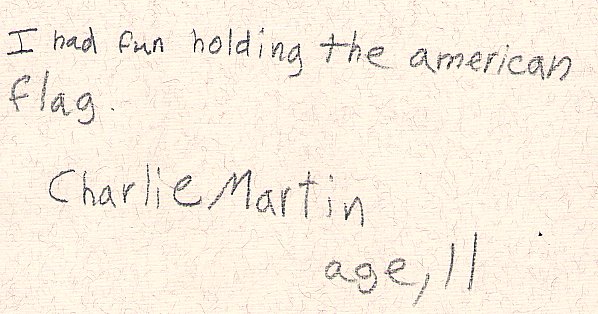 I had fun holding the american
flag.
Charlie Martin
age, 11